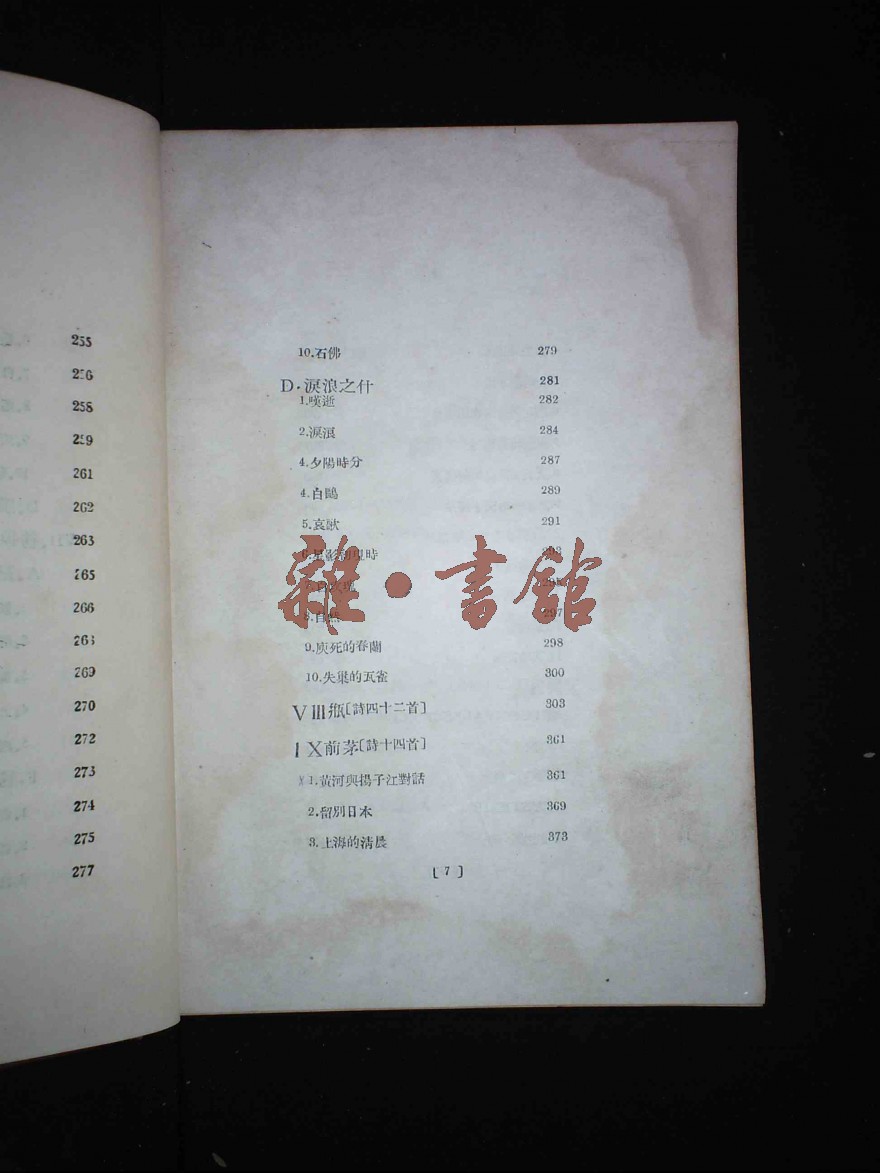 255
256
258
259
261
262
263
265
266
268
269
270
272
273
274
275
277
10.石佛 279
D·淚浪之什 281
1.嘆逝 282
2.淚浪 284
4.夕陽時分 287
4.白鷗 289
5.哀歌 291
6.星影初現時 293
7.白玫瑰 295
8.自然 297
9.庾死的春蘭 298
10.失巢的瓦雀 300
VIII瓶〔詩四十二首〕 303
IX前茅〔詩十四首〕 361
1.黃河與揚子江對話 361
2.留別日本 369
3.上海的清晨 373
[ 7 ]
雜·書館